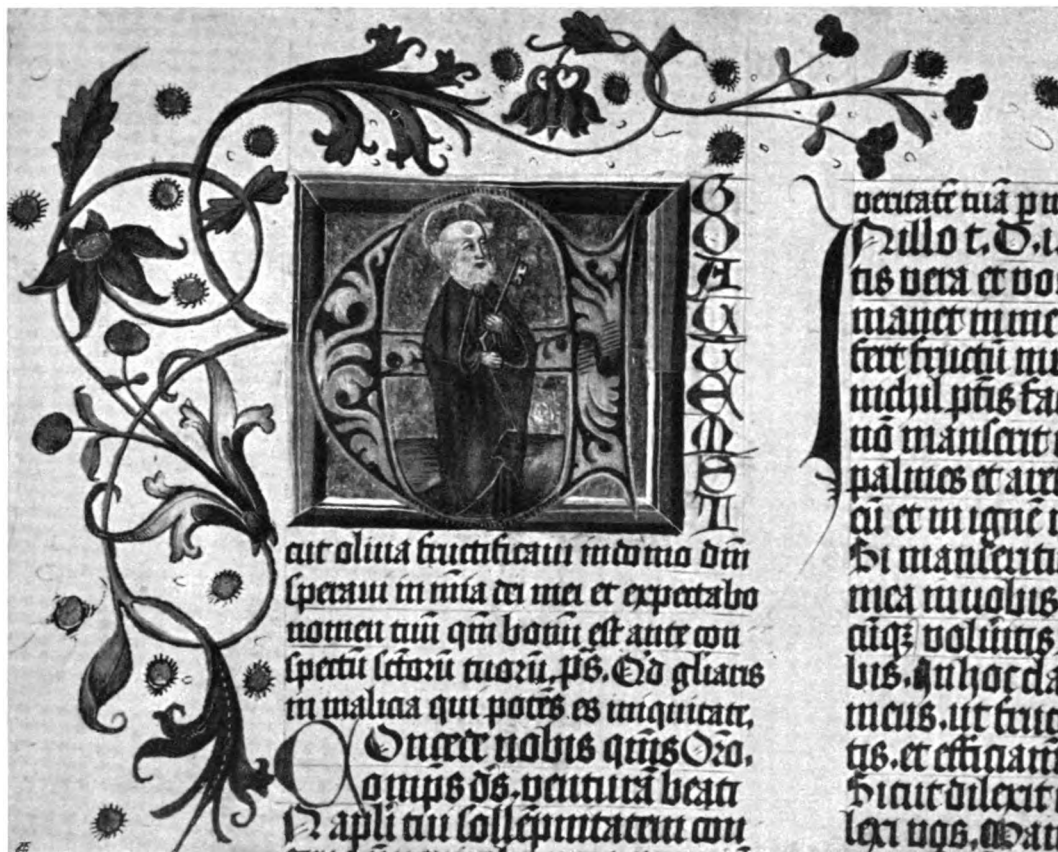 EGO AUTEM SI
cut oliua fructificaui in domo dn̄i
speraui in mīa dei mei et expectabo
nomen tuū qm̄ bonū est ante con
spectū sctōrū tuorū. p̄s. Qd gliaris
in malicia qui potēs es iniquitate.
Oncede nobis qūis Orō.
omips d̄s. venturā beati
N apli tui sollēpnitatem con
veritatē tuā
N illo t. D.
tis vera et
manet in me
fert fructū
nichil ptīs fa
nō manserit
palmes et
eū et in ignē
Si manserit
mea in uobis
bis. In hoc cla
meus. ut fruc
tis. et
Sicut dilexit
lexi vos. Man